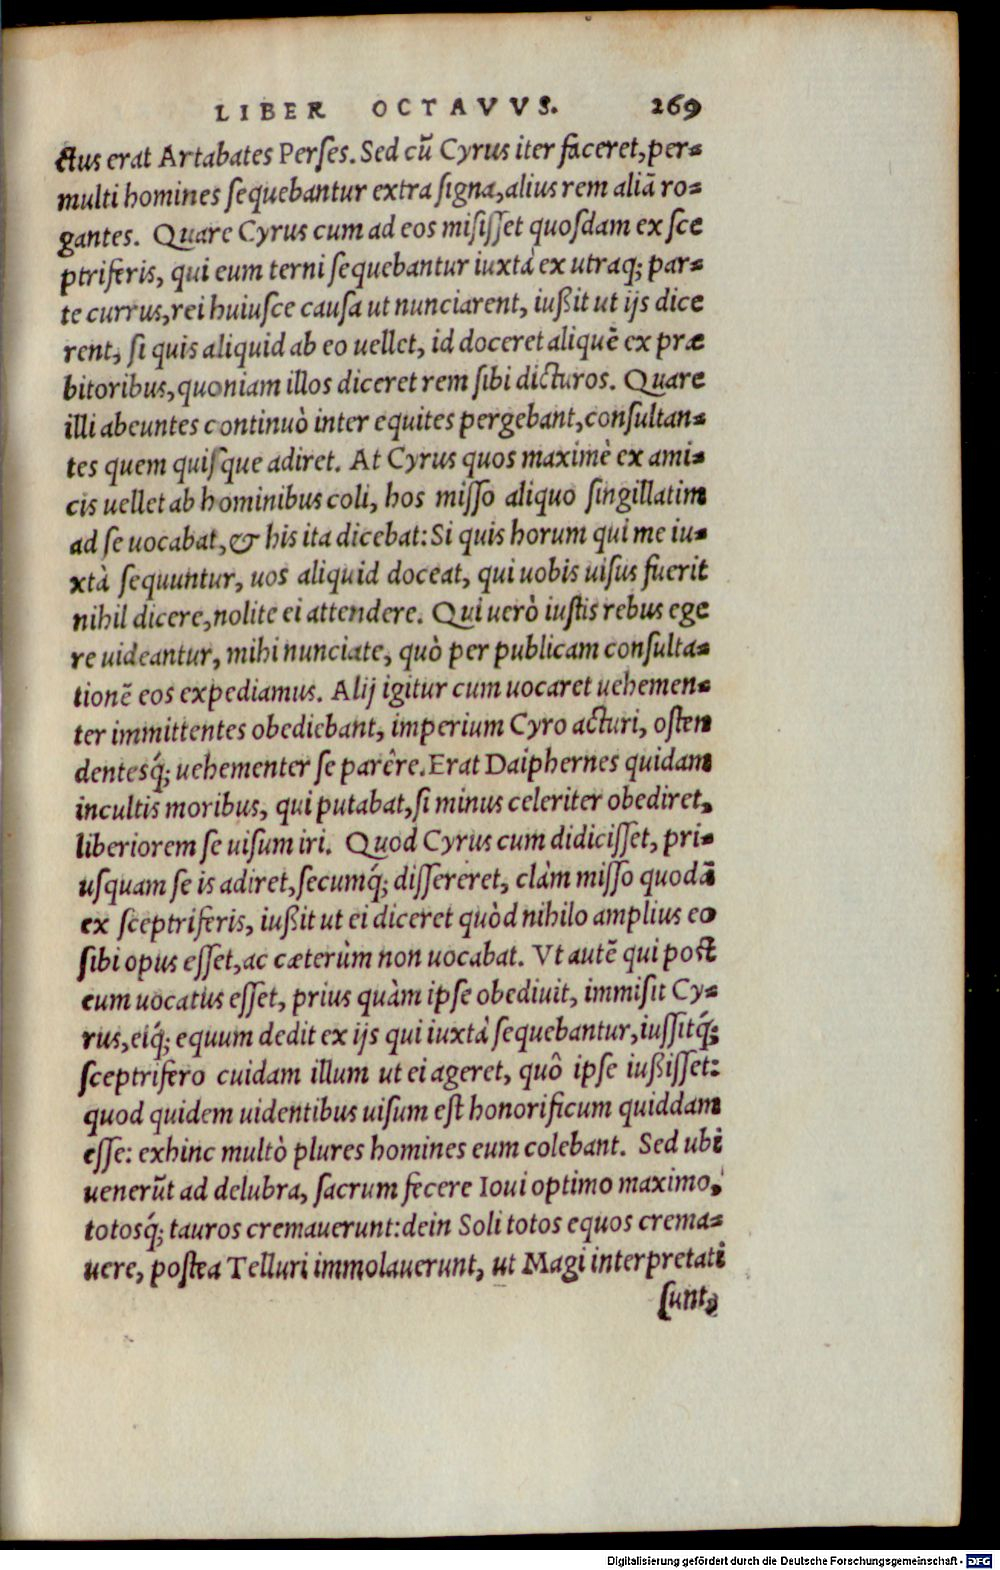 LIBER OCTAVVS. 269
ctus erat Artabates Perſes. Sed cū Cyrus iter faceret, per-
multi homines ſequebantur extra ſigna, alius rem aliā ro-
gantes. Quare Cyrus cum ad eos miſiſſet quoſdam ex ſce
ptriferis, qui eum terni ſequebantur iuxtà ex utraq; par-
te currus, rei huiuſce cauſa ut nunciarent, iußit ut ijs dice
rent, ſi quis aliquid ab eo uellet, id doceret aliquē ex præ
bitoribus, quoniam illos diceret rem ſibi dicturos. Quare
illi abeuntes continuò inter equites pergebant, conſultan-
tes quem quiſque adiret. At Cyrus quos maximè ex ami-
cis uellet ab hominibus coli, hos miſſo aliquo ſingillatim
ad ſe uocabat, & his ita dicebat: Si quis horum qui me iu-
xtà ſequuntur, uos aliquid doceat, qui uobis uiſus fuerit
nihil dicere, nolite ei attendere. Qui uerò iuſtis rebus ege
re uideantur, mihi nunciate, quò per publicam conſulta-
tionē eos expediamus. Alij igitur cum uocaret uehemen-
ter immittentes obediebant, imperium Cyro acturi, oſten
dentesq́; uehementer ſe parêre. Erat Daiphernes quidam
incultis moribus, qui putabat, ſi minus celeriter obediret,
liberiorem ſe uiſum iri. Quod Cyrus cum didiciſſet, pri-
uſquam ſe is adiret, ſecumq́; diſſereret, clàm miſſo quodā
ex ſceptriferis, iußit ut ei diceret quòd nihilo amplius eo
ſibi opus eſſet, ac cæterùm non uocabat. Vt autē qui poſt
eum uocatus eſſet, prius quàm ipſe obediuit, immiſit Cy-
rus, eiq́; equum dedit ex ijs qui iuxtà ſequebantur, iuſſitq́;
ſceptrifero cuidam illum ut ei ageret, quô ipſe iußiſſet:
quod quidem uidentibus uiſum eſt honorificum quiddam
eſſe: exhinc multò plures homines eum colebant. Sed ubi
uenerūt ad delubra, ſacrum fecere Ioui optimo maximo,
totosq́; tauros cremauerunt: dein Soli totos equos crema-
uere, poſtea Telluri immolauerunt, ut Magi interpretati
ſunt,
Digitalisierung gefördert durch die Deutsche Forschungsgemeinschaft - DFG